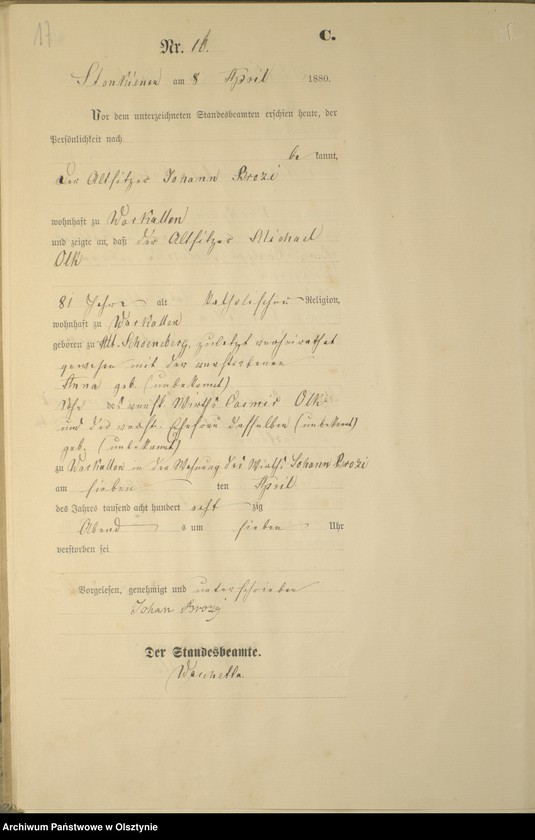 17
C.
Nr. 16.
Stenkienen am 8 April 1880.
Vor dem unterzeichneten Standesbeamten erschien heute, der
Persönlichkeit nach
be kannt,
der Altsitzer Johann Brozi
wohnhaft zu Warkallen
und zeigte an, daß der Altsitzer Michael
Olk
81 Jahre alt katholischen Religion,
wohnhaft zu Warkallen
geboren zu Alt-Schoeneberg, zuletzt verheirathet
gewesen mit der verstorbenen
Anna geb. (unbekannt)
Sohn des verst. Wirths Casmir Olk
und der verst. Ehefrau desselben (unbekannt)
geb. (unbekannt)
zu Warkallen in der Wohnung des Wirths Johann Brozi
am sieben ten April
des Jahres tausend acht hundert acht zig
Abend s um sieben Uhr
verstorben sei
Vorgelesen, genehmigt und unterschrieben
Johan Brozy
Der Standesbeamte.
Archiwum Państwowe w Olsztynie